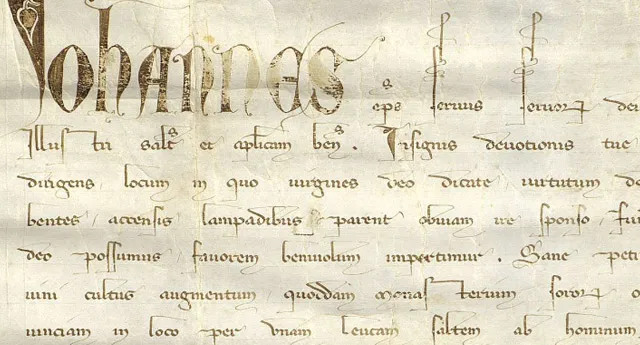 Johannes eps servus servor de
Illustri salt et aplicam ben. Insignis devotionis tue
dirigens locum in quo virgines deo dicate virtutum
bentes accensis lampadibus parent obviam ire sponso
deo possumus favorem benivolum impertimur. Sane peti
vini cultus augmentum quoddam monasterium soror
in loco per unam leucam saltem ab hominum